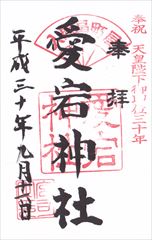 奉祝 天皇陛下御在位三十年
奉拝
愛宕神社
平成三十年九月十一日